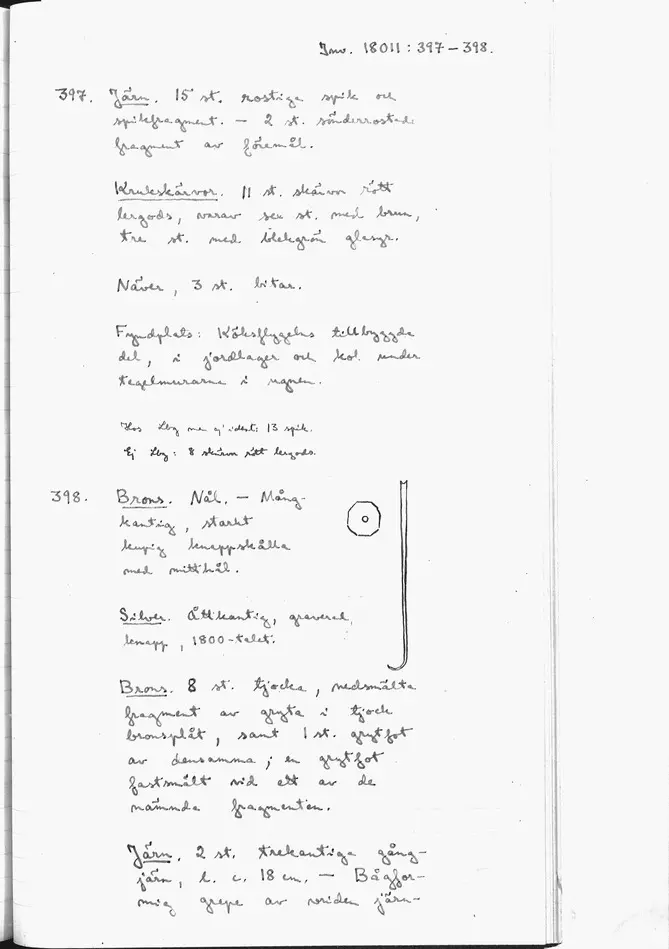 Inv. 18011: 397-398.
397. Järn. 15 st. rostiga spik och
spikfragment. - 2 st. sönderrostade
fragment av föremål.
Krukskärvor. 11 st. skärvor rött
lergods, varav sex st. med brun,
tre st. med blekgrön glasyr.
Näver, 3 st. bitar.
Fyndplats: Köksflygelns tillbyggda
del, i jordlager och kol under
tegelmurarna i ugnen.
Hos Lbg men ej ident: 13 spik.
Ej Lbg: 8 skärvor rött lergods.
398. Brons. Nål. - Mång-
kantig, starkt
kupig knappskålla
med mitthål.
Silver. Åttkantig, graverad,
knapp, 1800-talet.
Brons. 8 st. tjocka, nedsmälta
fragment av gryta i tjock
bronsplåt, samt 1 st. grytfot
av densamma; en grytfot
fastsmält vid ett av de
nämnda fragmenten.
Järn. 2 st. trekantiga gång-
järn, l. c. 18 cm. - Bågfor-
mig grepe av vriden järn-